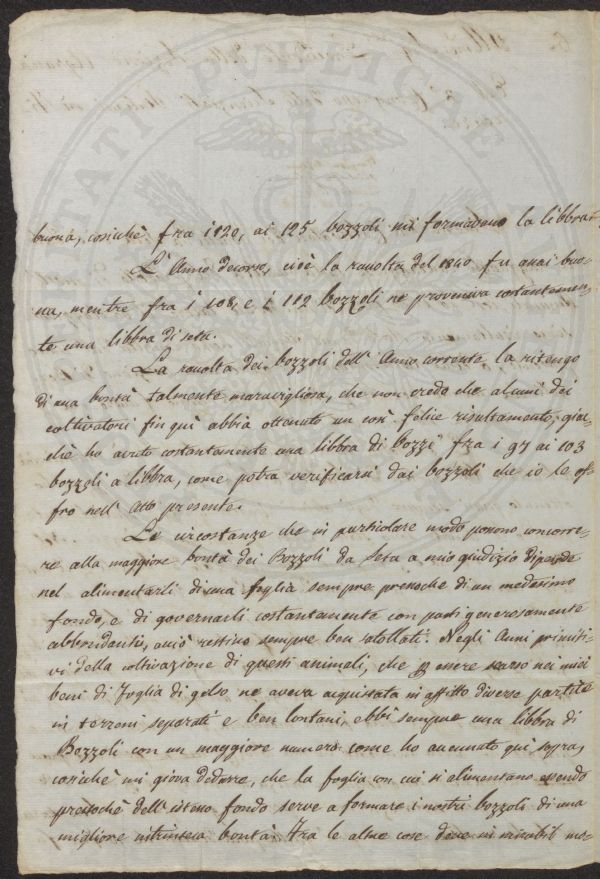 buona, cosichè fra i 120, ai 125 bozzoli mi formavano la libbra.
L'Anno decorso, cioè la raccolta del 1840 fu assai buo-
na, mentre fra i 108, e i 112 Bozzoli ne proveniva costantemen-
te una libbra di seta.
La raccolta dei bozzoli dell'Anno corrente la ritengo
di una bontà talmente maravigliosa, che non credo che alcuni dei
coltivatori fin quì abbia ottenuto un così felice risultamento, giac-
chè ho avuto costantemente una libbra di bozzi fra i 97 ai 103
bozzoli a libbra, come potrà verificarsi dai bozzoli che io le of-
fro nell'atto presente.
Le circostanze che in particolare modo ponno concorre-
re alla maggiore bontà dei Bozzoli da Seta a mio giudizio dipende
nel alimentarli di una foglia sempre pressochè di un medesimo
fondo, e di governarli costantemente con pasti generosamente
abbondanti, acciò restino sempre ben satollati. Negli Anni primiti-
vi della coltivazione di questi animali, che per essere scarso nei miei
beni di foglia di gelso ne aveva acquistata in affitto diverse partite
in terreni separati e ben lontani, ebbi sempre una libbra di
Bozzoli con un maggiore numero come ho accennato quì sopra,
cosichè mi giova dedurre, che la foglia con cui si alimentano essendo
pressochè dell'istesso fondo serve a formare i nostri bozzoli di una
migliore intrinseca bontà. Fra le altre cose deve in mirabil mo-